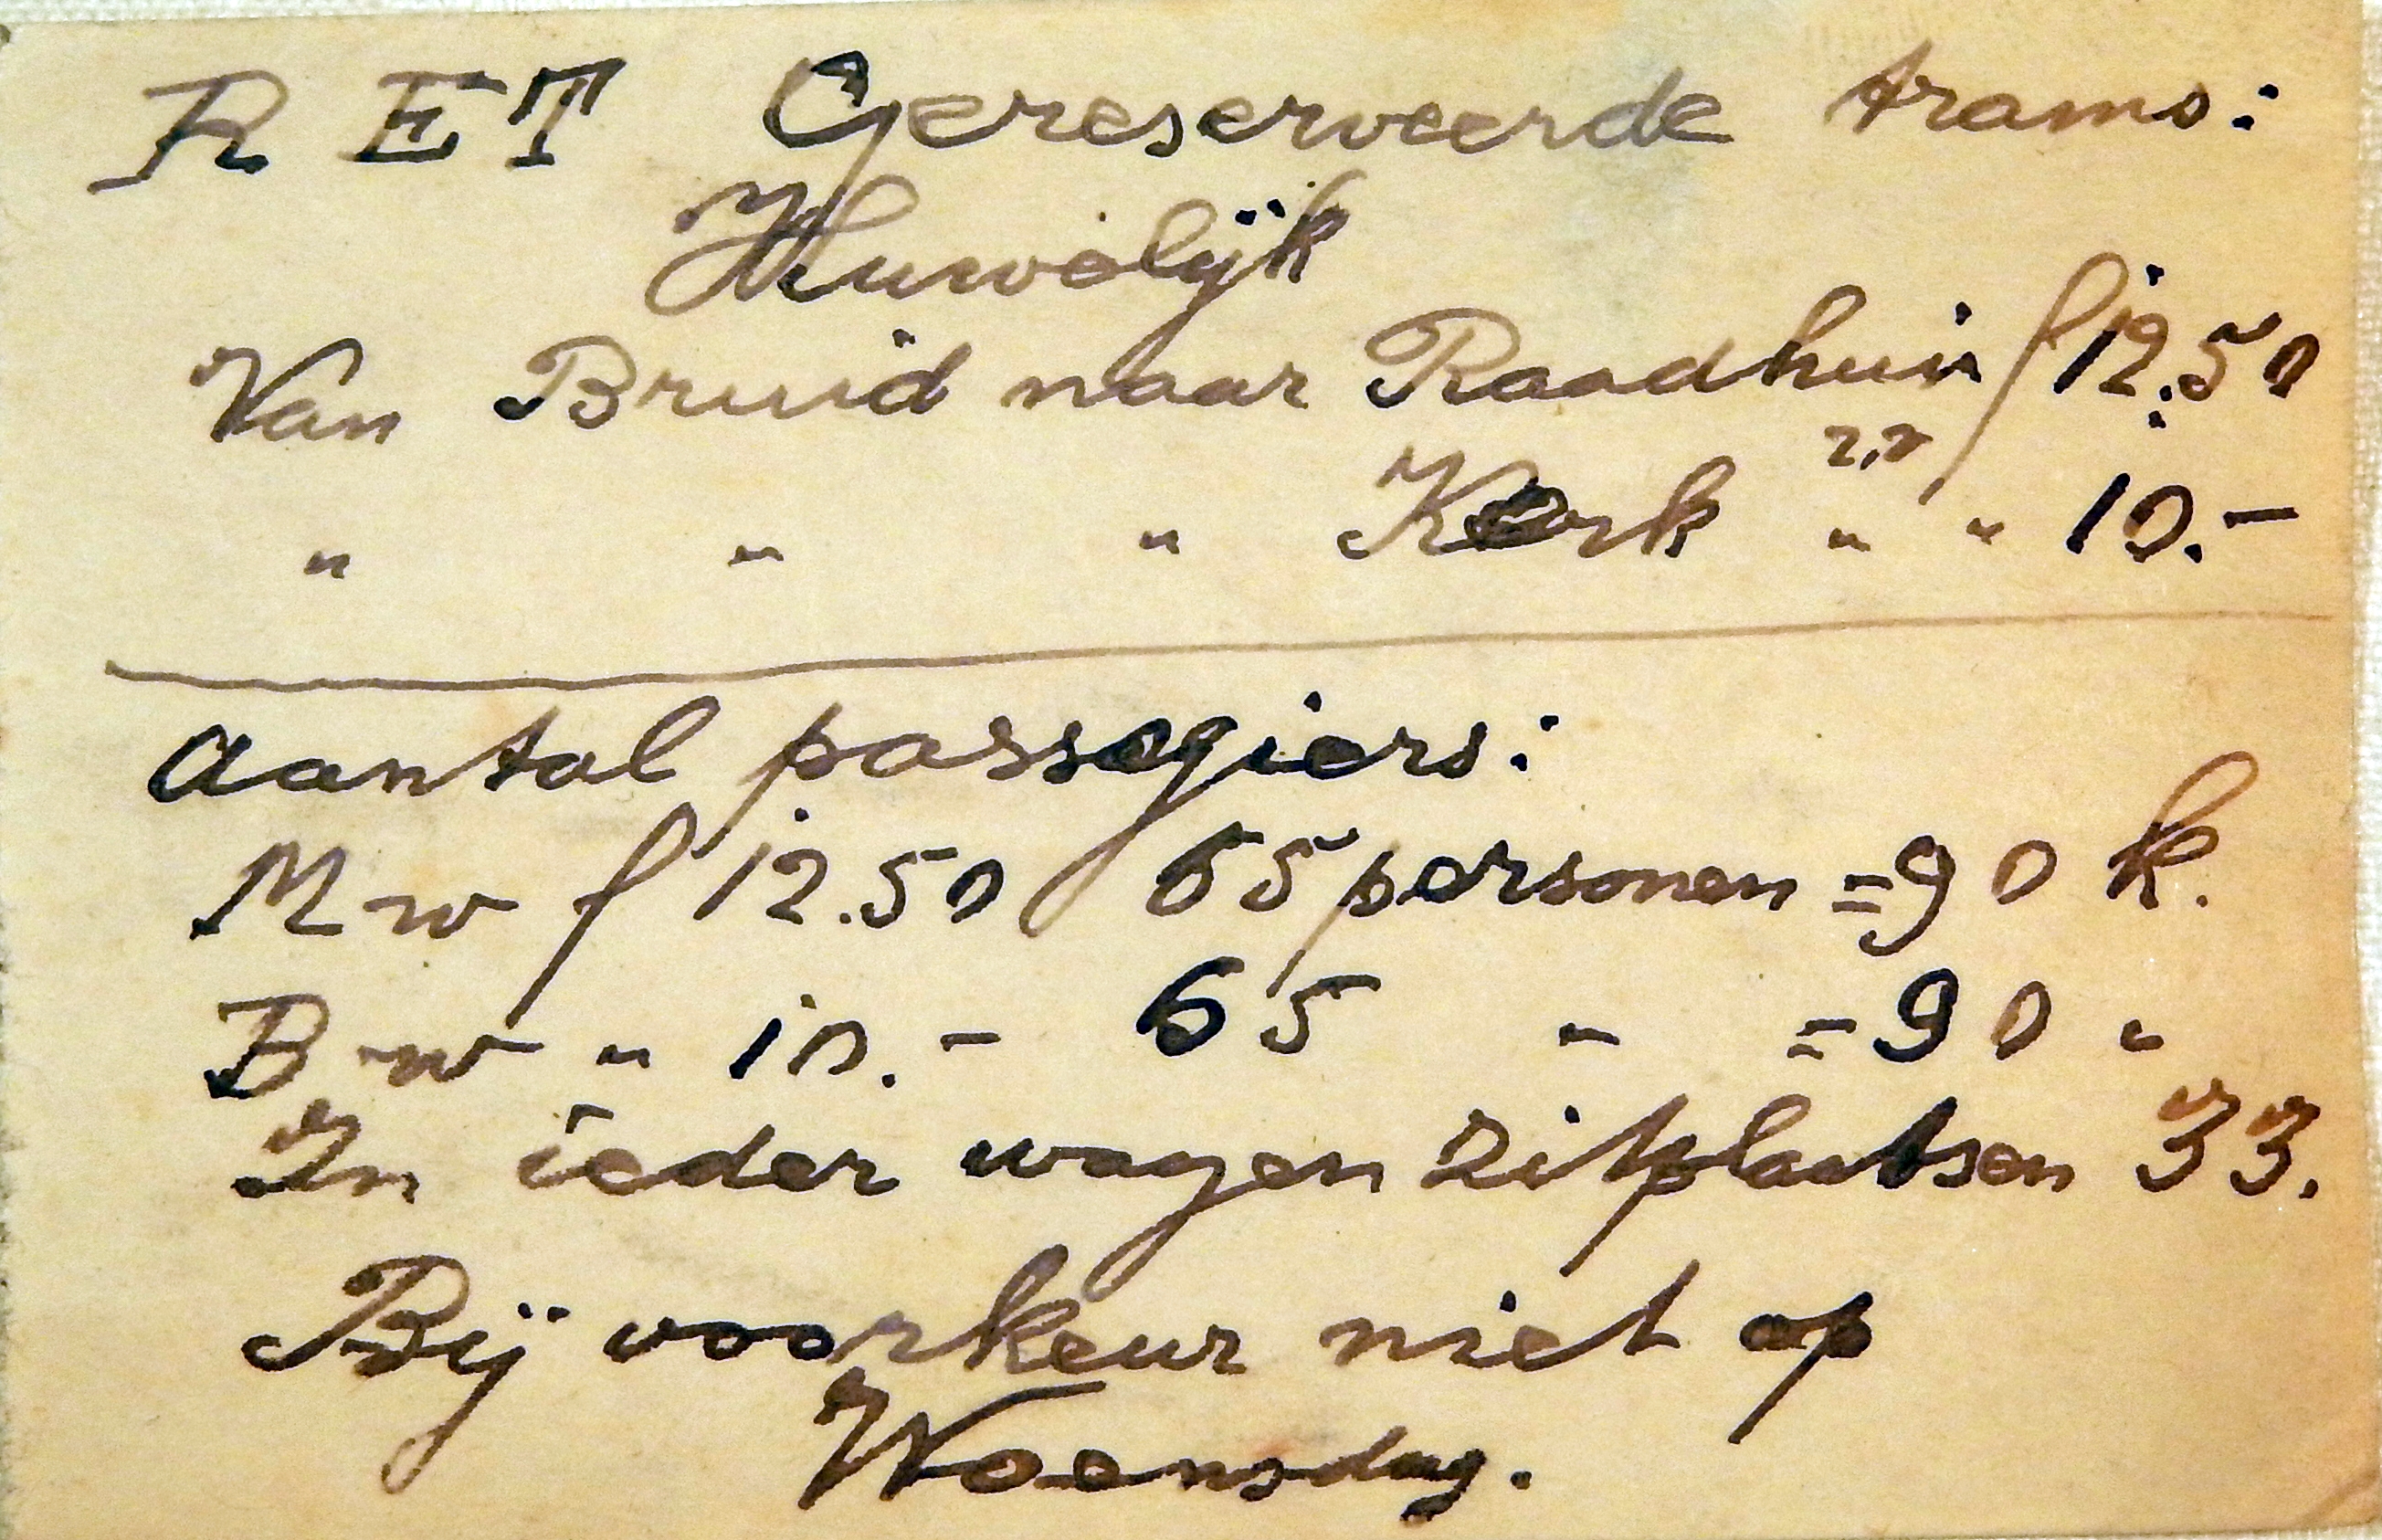 R E T Gereserveerde trams:
Huwelijk
Van Bruid naar Raadhuis f 12.50
" " " Kerk " " 10.-
Aantal passegiers:
M w f 12.50 65 personen = 90 k.
B-w " 10.- 65 " = 90 "
In ieder wagen zitplaatsen 33.
Bij voorkeur niet op
Woensdag.